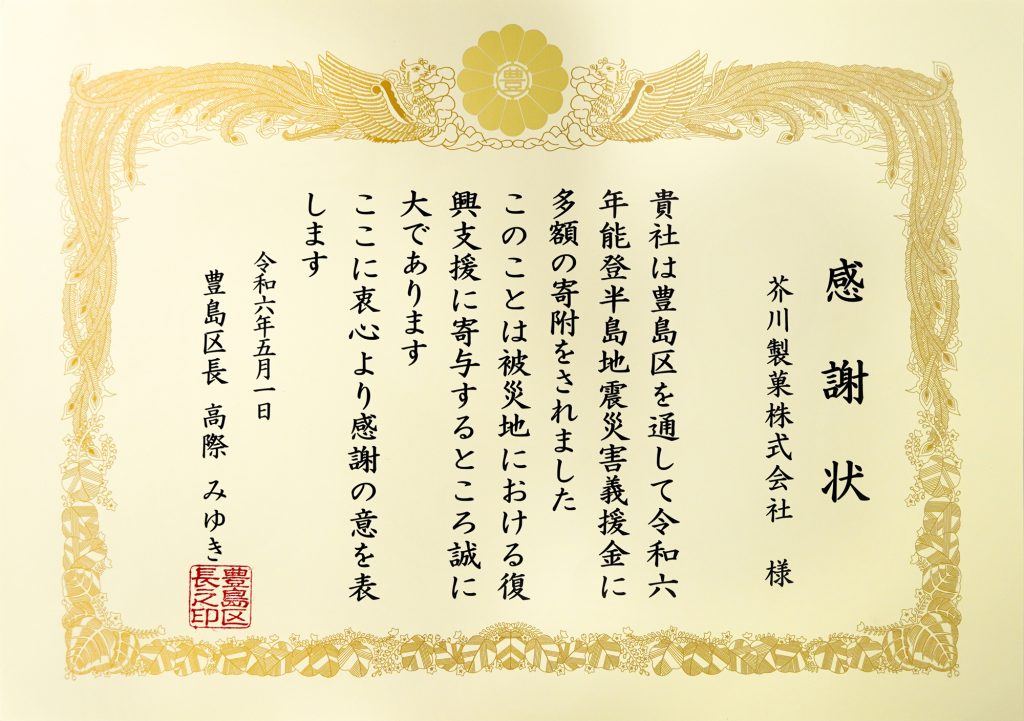 豊
感謝状
芥川製菓株式会社 様
貴社は豊島区を通して令和六
年能登半島地震災害義援金に
多額の寄附をされました
このことは被災地における復
興支援に寄与するところ誠に
大であります
ここに衷心より感謝の意を表
します
令和六年五月一日
豊島区長 高際 みゆき
豊島区
長之印